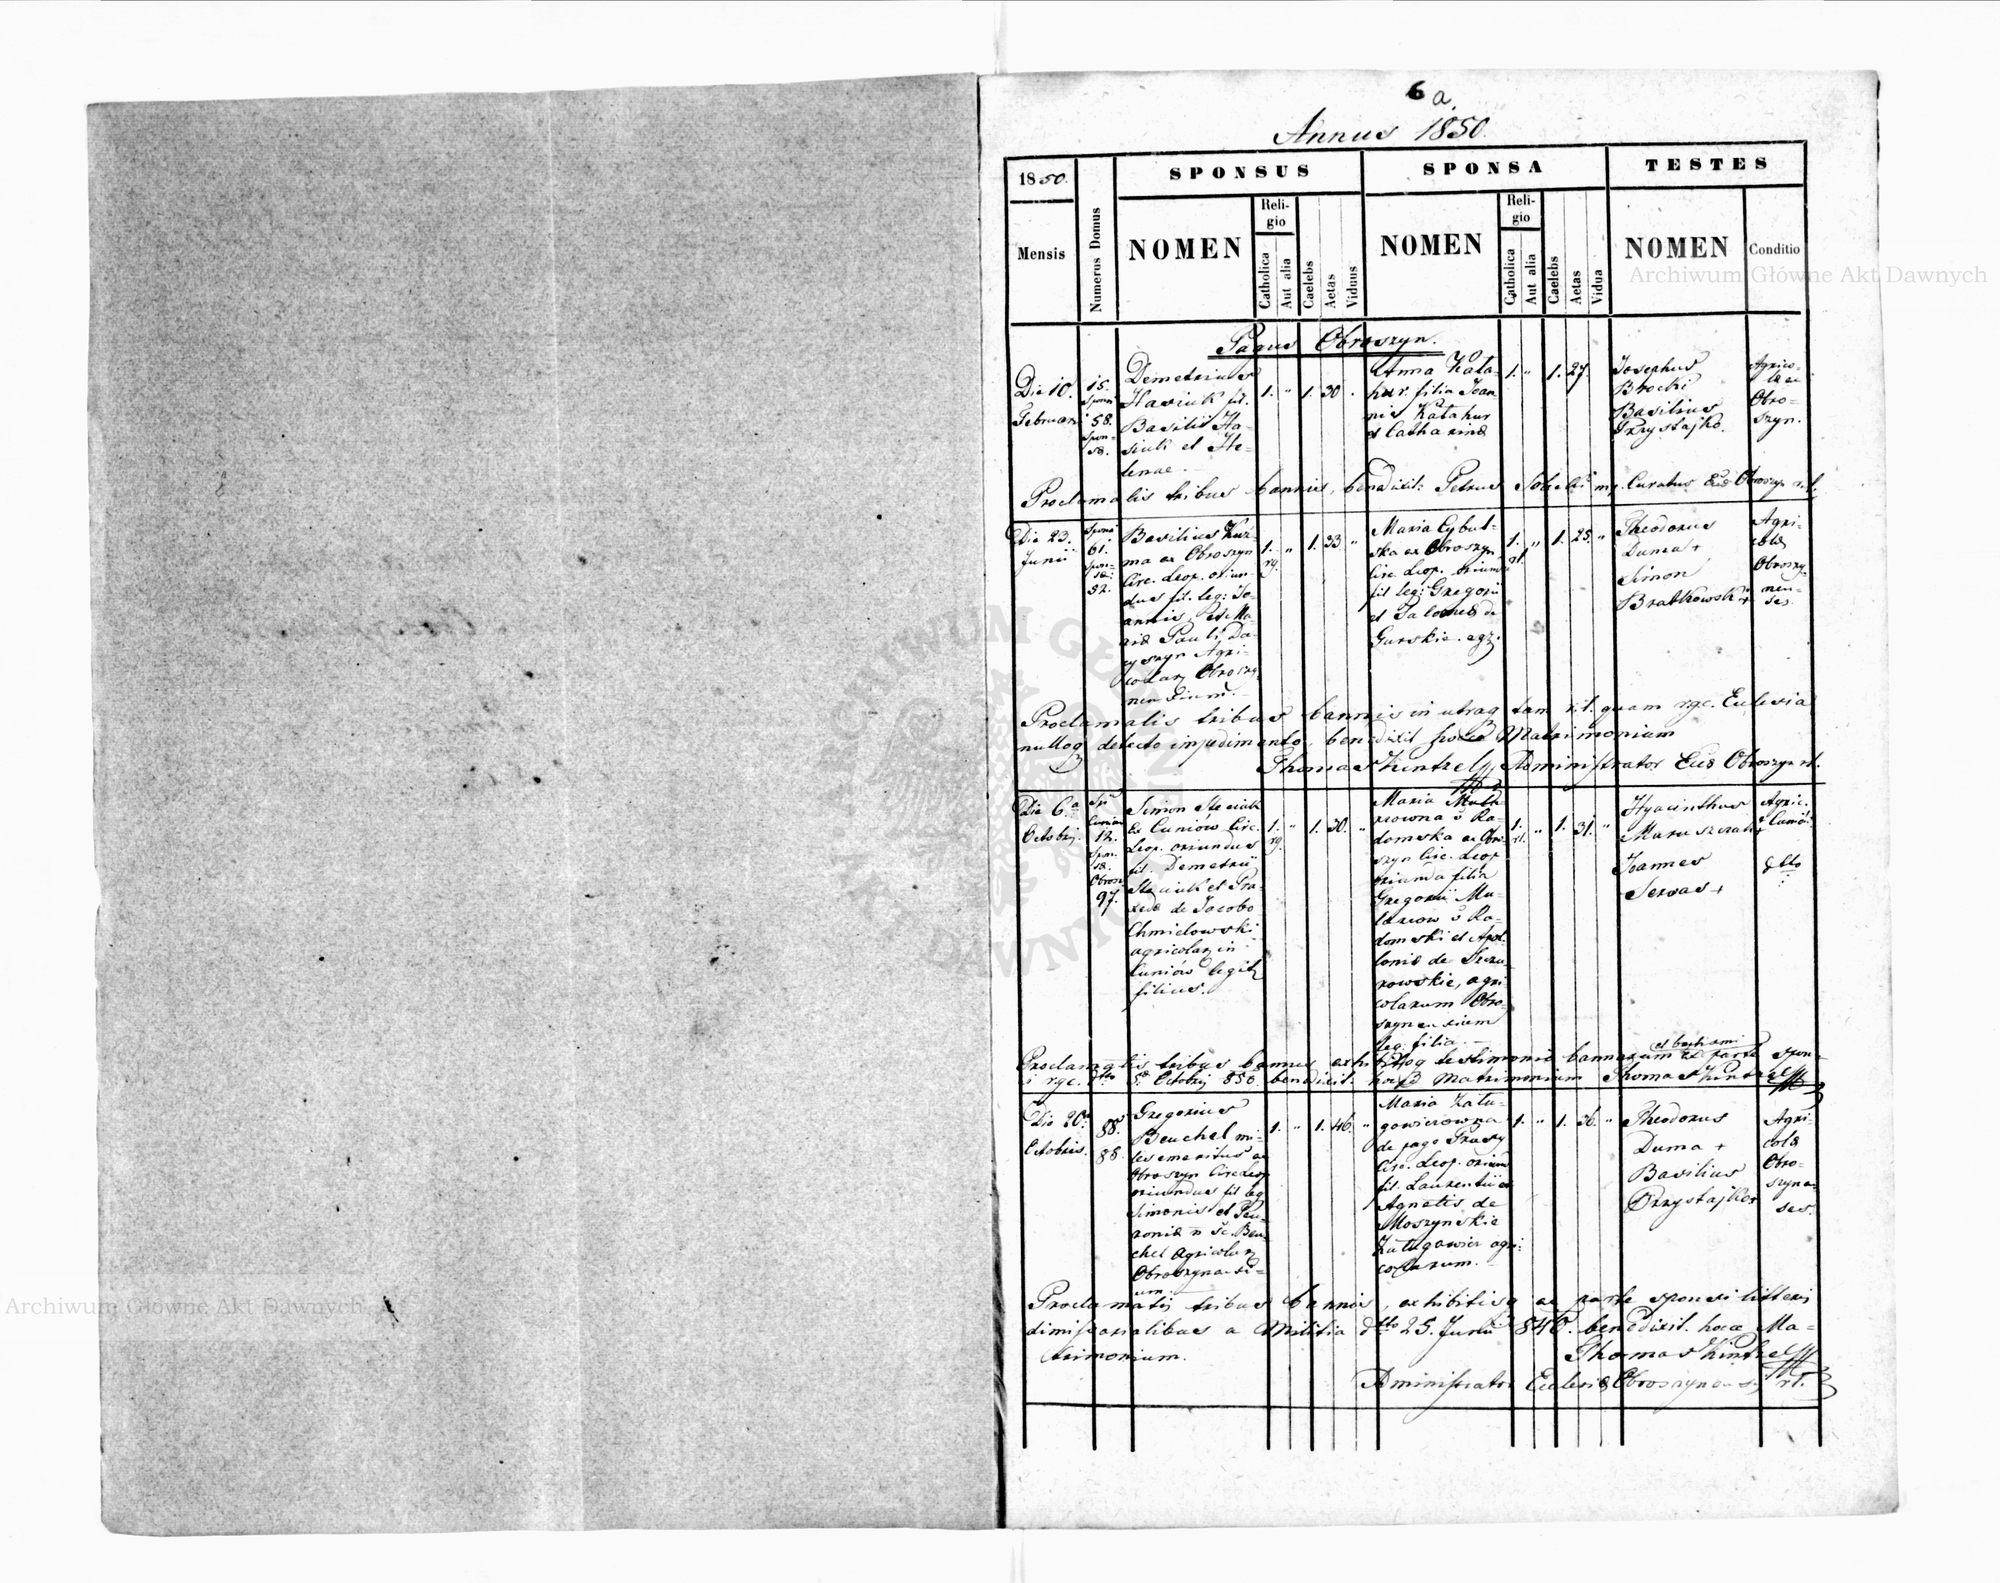 6 a.
Annus 1850.
1850.
SPONSUS
SPONSA
TESTES
Mensis
Numerus Domus
NOMEN
Religio
Catholica
Aut alia
Caelebs
Aetas
Viduus
NOMEN
Religio
Catholica
Aut alia
Caelebs
Aetas
Vidua
NOMEN
Conditio
Pagus Obroszyn.
Die 10.
Februarii
15.
Sponsi
58.
Spon-
sæ.
Demetrius
Hasiuk fil.
Basilii Ha-
siuk et He-
lenae.
1. " 1. 30.
Anna Kata-
hur filia Joan-
nis Katahur
et Catharinæ
1. " 1. 27.
Josephus
Brocki
Basilius
Przystajko.
Agrico-
læ ex
Obro-
szyn.
Proclamatis tribus bannis, benedixit: Petrus mp. Curatus Eccl Obroszyn r.l.
Die 23.
Junii
Sponsi
61.
Spon-
sæ:
52.
Basilius Kuź-
ma ex Obroszyn
Circ. Leop. oriun-
dus fil. leg: Jo-
annis, et Ma-
riæ Pauli Da-
cyszyn Agri-
colarum Obroszy-
nensium.
1. rg. " 1. 33. "
Maria Cybul-
ska ex Obroszyn
Circ. Leop. oriunda
fil leg: Gregorii
et Salomeæ de
Gurskie. agr.
1. rl. " 1. 25. "
Theodorus
Duma +
Simon
Bratkowski +
Agri-
colæ
Obroszy-
nen-
ses.
Proclamatis tribus bannis in utraq tam r.l. quam rgc. Eclesia
nulloq detecto impedimento, benedixit hocce Matrimonium
Thomas Kintzel Administrator Eccl Obroszyn rl.
Die 6ta
Octobris.
Spsi
Cuniów
12.
Spon-
sæ.
Obrosz
97.
Simon Steciuk
Ex Cuniów Circ.
Leop. oriundus
fil. Demetrii
Steciuk et Pra-
xedæ de Jacobo
Chmielowski
agricolarum in
Cuniów legit
filius.
1. rg. " 1. 30. "
Maria Mula-
rzowna v Ra-
domska ex Obro-
szyn Circ. Leop
oriunda filia
Gregorii Mu-
larzow v Ra-
domski et Apol-
loniæ de Szczu-
rowskie, agri
colarum Obro-
szynensium
leg. filia.
1. rl. " 1. 31. "
Hyacinthus
Maruszczak +
Joannes
Serwas +
Agric.
e Cuniów
dtto
Proclamatis tribus bannis, exhibitoq testimonio bannorum et baptismi ex parte spon-
si rgc. dtto 5æ Octobris 850. benedixit hocce Matrimonium Thomas Kintzel
Die 20.
Octobris.
88.
85.
Gregorius
Beuchel mi-
les emeritus ex
Obroszyn Circ Leop
oriundus fil leg
Simonis et Peu-
roniæ n Sc. Beu-
chel Agricolarum
Obroszynensi-
um.
1. " 1. 46. "
Maria Zału-
gowiczowna
de pago
Circ. Leop. oriund
fil. Laurentii et
Agnetis de
Moszynskie
Załugowicz agri-
colarum.
1. " 1. 36. "
Theodorus
Duma +
Basilius
Przystajko +
Agri-
colæ
Obro-
szynen-
ses.
Proclamatis tribus bannis, exhibitisq ex parte sponsi litteris
dimissorialibus a Militia dtto 25. Junii 846. benedixit hocce Ma-
trimonium. Thomas Kintzel
Administrator Eclesiæ Obroszynensis rl.
Archiwum Główne Akt Dawnych
Archiwum Główne Akt Dawnych
ARCHIWUM GŁÓWNE AKT DAWNYCH